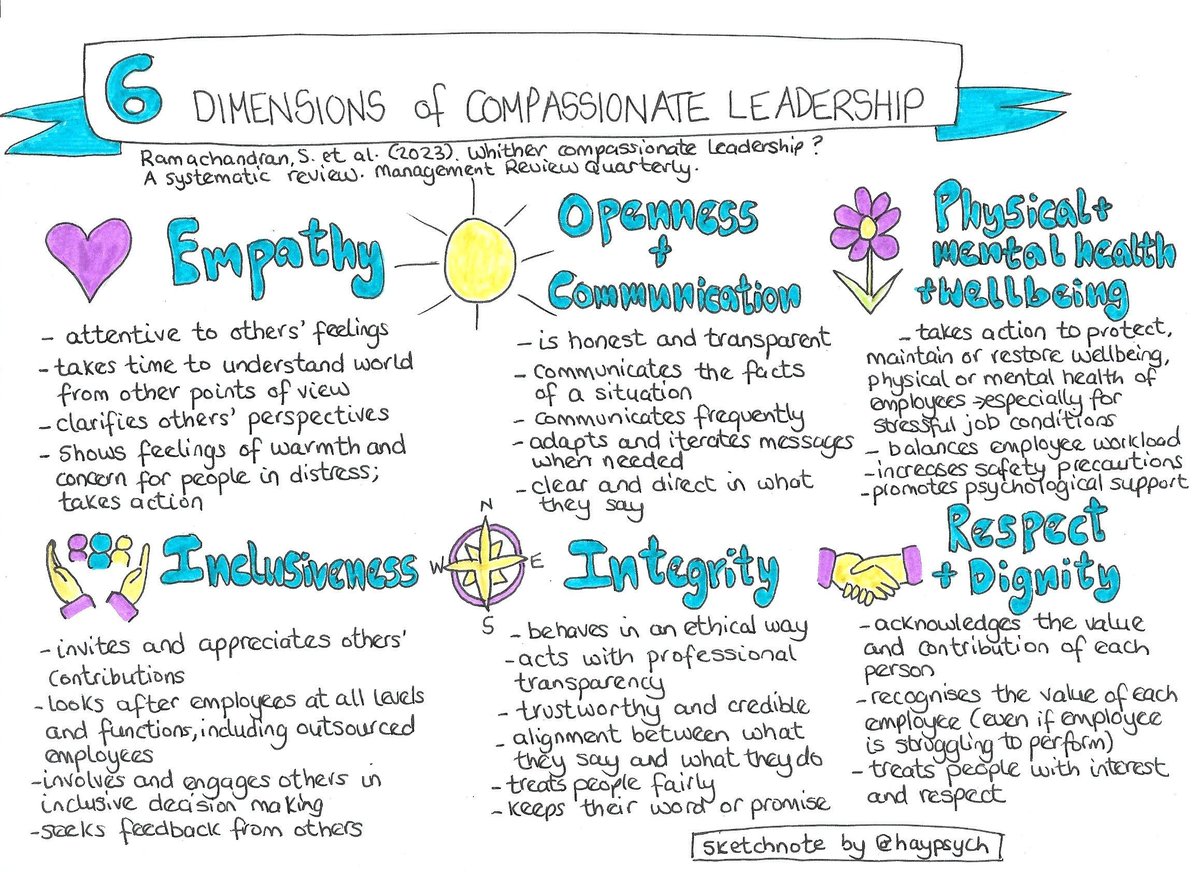 6 DIMENSIONS of COMPASSIONATE LEADERSHIP
Ramachandran, S. et al. (2023). Whither compassionate leadership?
A systematic review. Management Review Quarterly.
Empathy
- attentive to others' feelings
- takes time to understand world
from other points of view
- clarifies others' perspectives
- shows feelings of warmth and
concern for people in distress;
takes action
Openness
+
Communication
- is honest and transparent
- communicates the facts
of a situation
- communicates frequently
- adapts and iterates messages
when needed
- clear and direct in what
they say
Physical +
mental health
+ wellbeing
- takes action to protect,
maintain or restore wellbeing,
physical or mental health of
employees → especially for
stressful job conditions
- balances employee workload
- increases safety precautions
- promotes psychological support
Inclusiveness
- invites and appreciates others'
contributions
- looks after employees at all levels
and functions, including outsourced
employees
- involves and engages others in
inclusive decision making
- seeks feedback from others
N
W E
S
Integrity
- behaves in an ethical way
- acts with professional
transparency
- trustworthy and credible
- alignment between what
they say and what they do
- treats people fairly
- keeps their word or promise
Respect
+ Dignity
- acknowledges the value
and contribution of each
person
- recognises the value of each
employee (even if employee
is struggling to perform)
- treats people with interest
and respect
Sketchnote by @haypsych